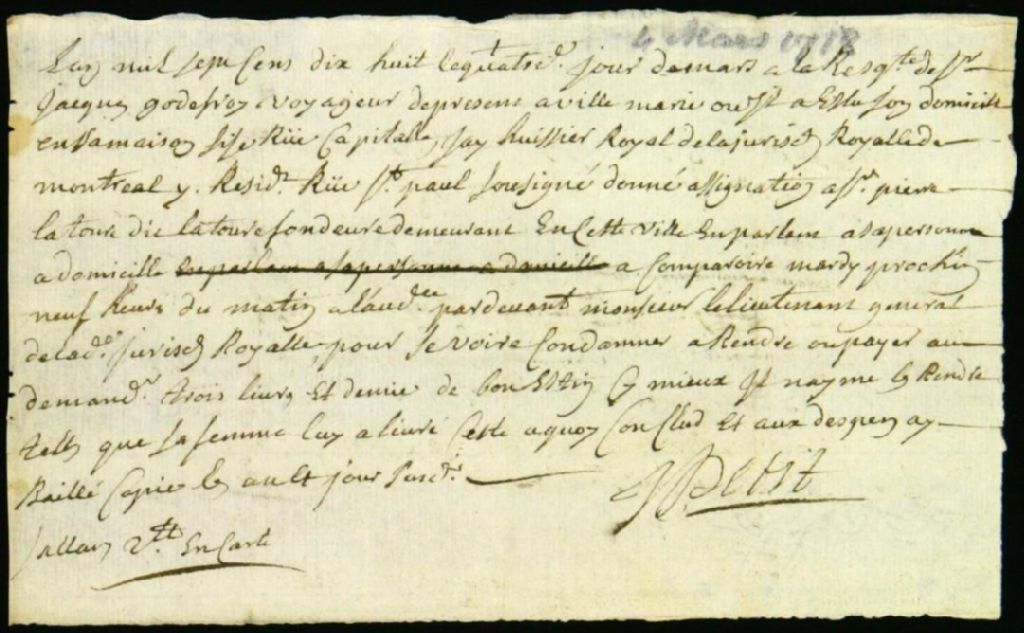 4 Mars 1718
Lan mil sept Cens dix huit le quatre.e jour de mars a la Resqte de Sr
Jacques godefroy voyageur de presens a ville marie ou Jl a Eslu son domicille
en sa maison sise Rüe Capitalle, Jay huissier Royal de la jurisd Royalle de
montreal y. Residt Rüe St paul sousigné donné assignation a Sr. pierre
latour dit latour fondeur demeurant En Cette ville En parlant a sa personne
a domicille en parlant a sa personne a domicille a Comparoire mardy prochin
neuf heure du matin a laudce pardevant monsieur le lieutenant general
de lade jurisd Royalle, pour se voire Condamner a Rendre ou payer au
demandr trois livres Et demie de bon Estin Cy mieux Jl nayme les Rendre
telles que sa femme luy a livré Ceste a quoy Conclud Et aux despens ay
Baillé Copie les an et jour susd.
JPetit
2tt En Carte